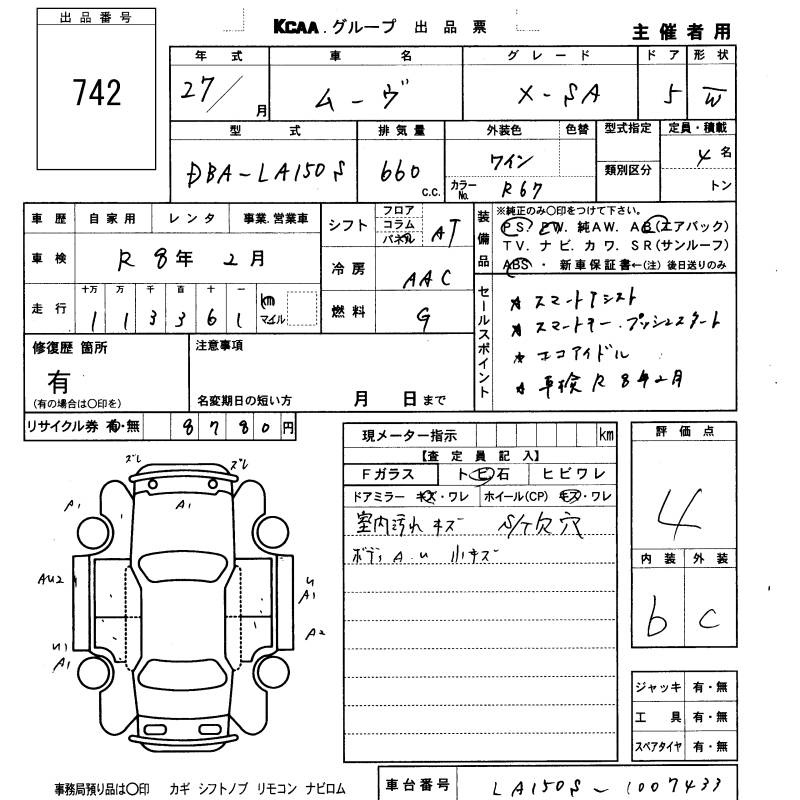 出品番号
742
KCAA.グループ 出品票
主催者用
年式 車名 グレード ドア 形状
27/ 月 ムーヴ X-SA 5 W
型式 排気量 外装色 色替 型式指定 定員・積載
DBA-LA150S 660 c.c. ワイン 類別区分 4名
カラーNo. R67 トン
車歴 自家用 レンタ 事業.営業車
シフト フロア コラム パネル AT
装備品 ※純正のみ○印をつけて下さい。
PS. PW. 純AW. AB(エアバック)
TV. ナビ. カワ. SR(サンルーフ)
ABS・ 新車保証書←(注) 後日送りのみ
車検 R 8年 2月
冷房 AAC
走行 十万 万 千 百 十 一 km マイル
1 1 3 3 6 1
燃料 G
セールスポイント
★ スマートアシスト
★ スマートキー.プッシュスタート
★ エコアイドル
★ 車検 R 8年2月
修復歴 箇所
有
(有の場合は○印を)
注意事項
名変期日の短い方 月 日まで
リサイクル券 有・無 8780円
現メーター指示 km
【査定員記入】
Fガラス トビ石 ヒビワレ
ドアミラー キズ・ワレ ホイール(CP) キズ・ワレ
室内汚れ キズ S/T欠穴
ボディ A.U 小キズ
評価点
4
内装 外装
b c
ズレ ズレ
A1 A1 A1
AU2 U A1
U1 A1 A2
ジャッキ 有・無
工具 有・無
スペアタイヤ 有・無
事務局預り品は○印 カギ シフトノブ リモコン ナビロム
車台番号 LA150S-1007433